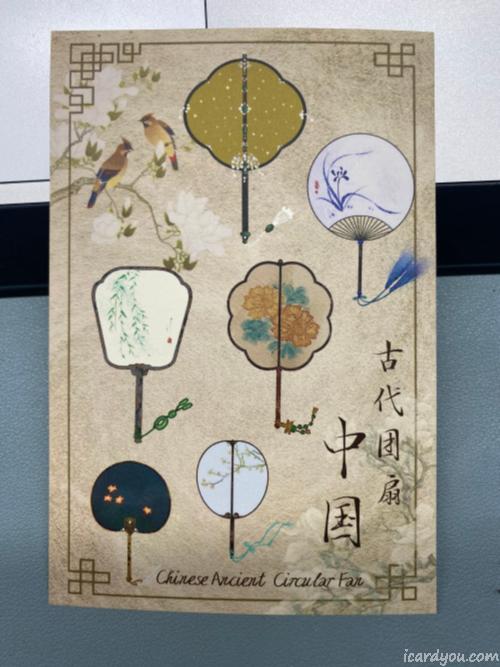 中国
古代团扇
Chinese Ancient Circular Fan
icardyou.com